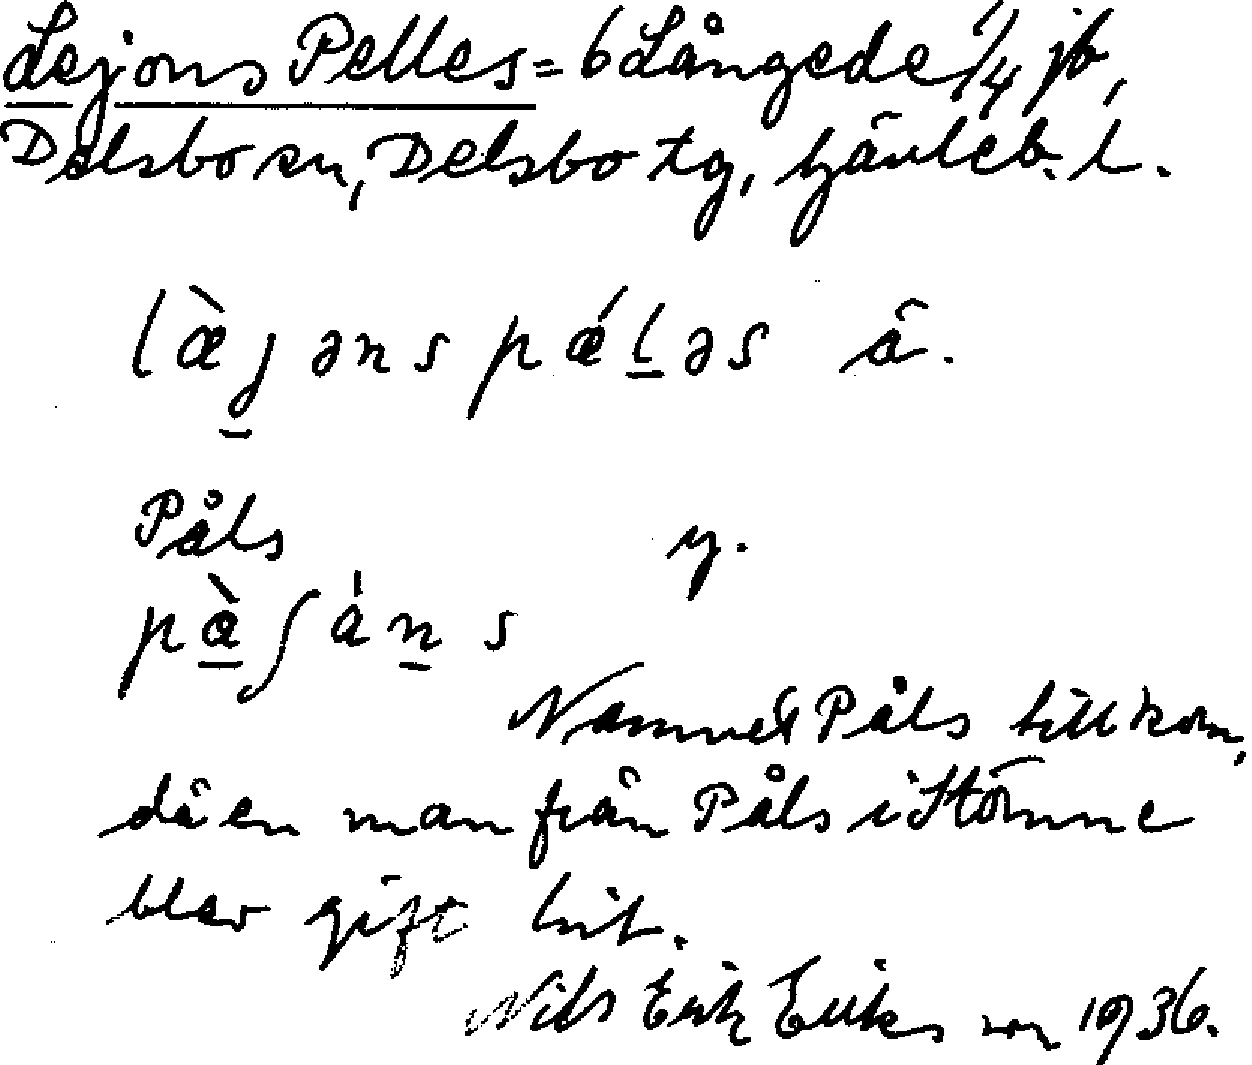 Lejons Pelles = 6 Långede 1/4 jb,
Delsbo sn, Delsbo tg, Gävleb. l.
læ̀jəns pǽləs å.
Påls y.
pà̱ʃáṉs
Namnet Påls tillkom,
då en man från Påls i Stömne
blev gift hit.
Nils Erik Eriksson 1936.